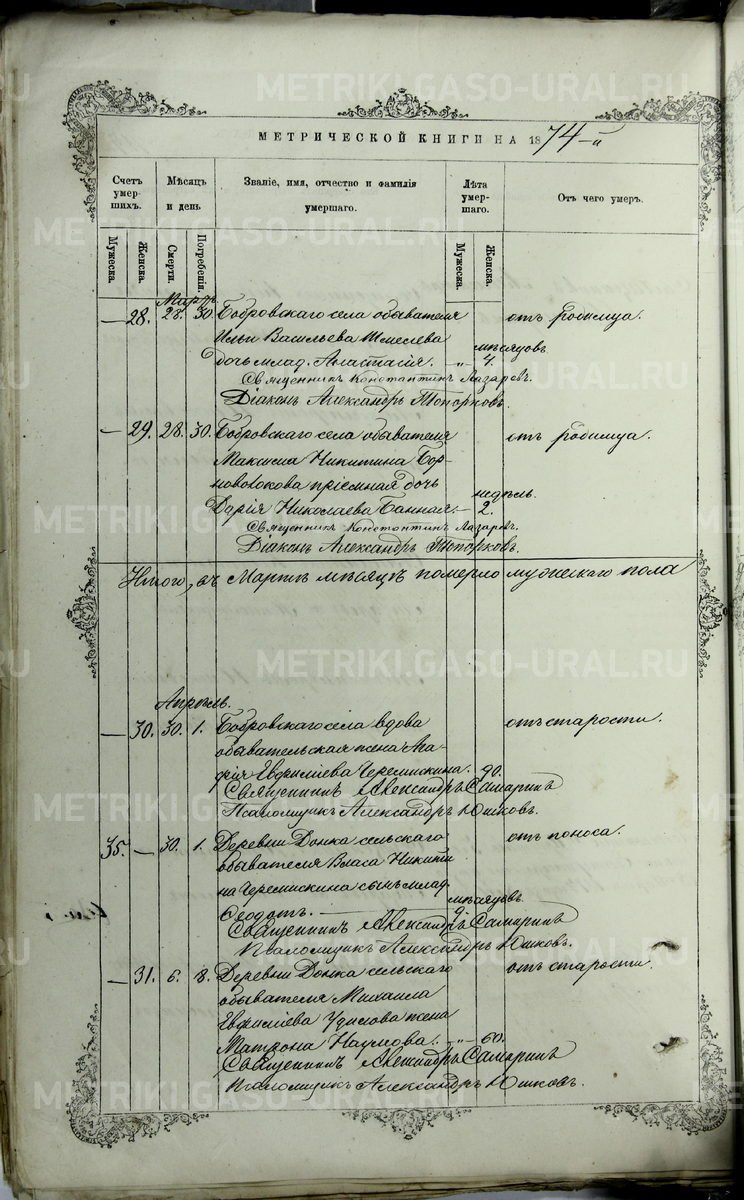 МЕТРИЧЕСКОЙ КНИГИ НА 1874-й
Счетъ умерших. Мѣсяцъ и день Званіе, имя, отчество и фамилія умершаго. Лѣта умершаго. Отъ чего умеръ.
Мужеска. Женска. Смерти. Погребенія. Мужеска. Женска.
Мартъ.
— 28. 28. 30. Бобровскаго села обывателя отъ родимца.
Ильи Васильева
мѣсяцовъ
дочь млад. Анастасія. „ 4.
Священникъ Константинъ Лазаревъ.
Діаконъ Александръ Топорковъ.
— 29. 28. 30. Бобровскаго села обывателя отъ родимца.
Максима Никитина Бор-
новолокова пріемная дочь
недѣль.
Дарія Николаева Банная. — 2.
Священникъ Константинъ Лазаревъ.
Діаконъ Александръ Топорковъ.
Итого, въ Мартѣ мѣсяцѣ померло мужескаго пола
Апрѣль.
— 30. 30. 1. Бобровскаго села вдова отъ старости.
обывательская жена Ага-
фія Евфиміева Черемискина. 90.
Священникъ Александръ Самаринъ
Псаломщикъ Александръ Юшковъ.
35. — 30. 1. Деревни Донка сельскаго отъ поноса.
обывателя Власа Никити
на Черемискина сынъ млад.
мѣсяцовъ
Ѳеодотъ. —
Священникъ Александръ Самаринъ
Псаломщикъ Александръ Юшковъ.
— 31. 6. 8. Деревни Донка сельскаго отъ старости.
обывателя Михаила
Евфиміева жена
Матрона Наумова. „ 60.
Священникъ Александръ Самаринъ
Псаломщикъ Александръ Юшковъ.
METRIKI.GASO-URAL.RU